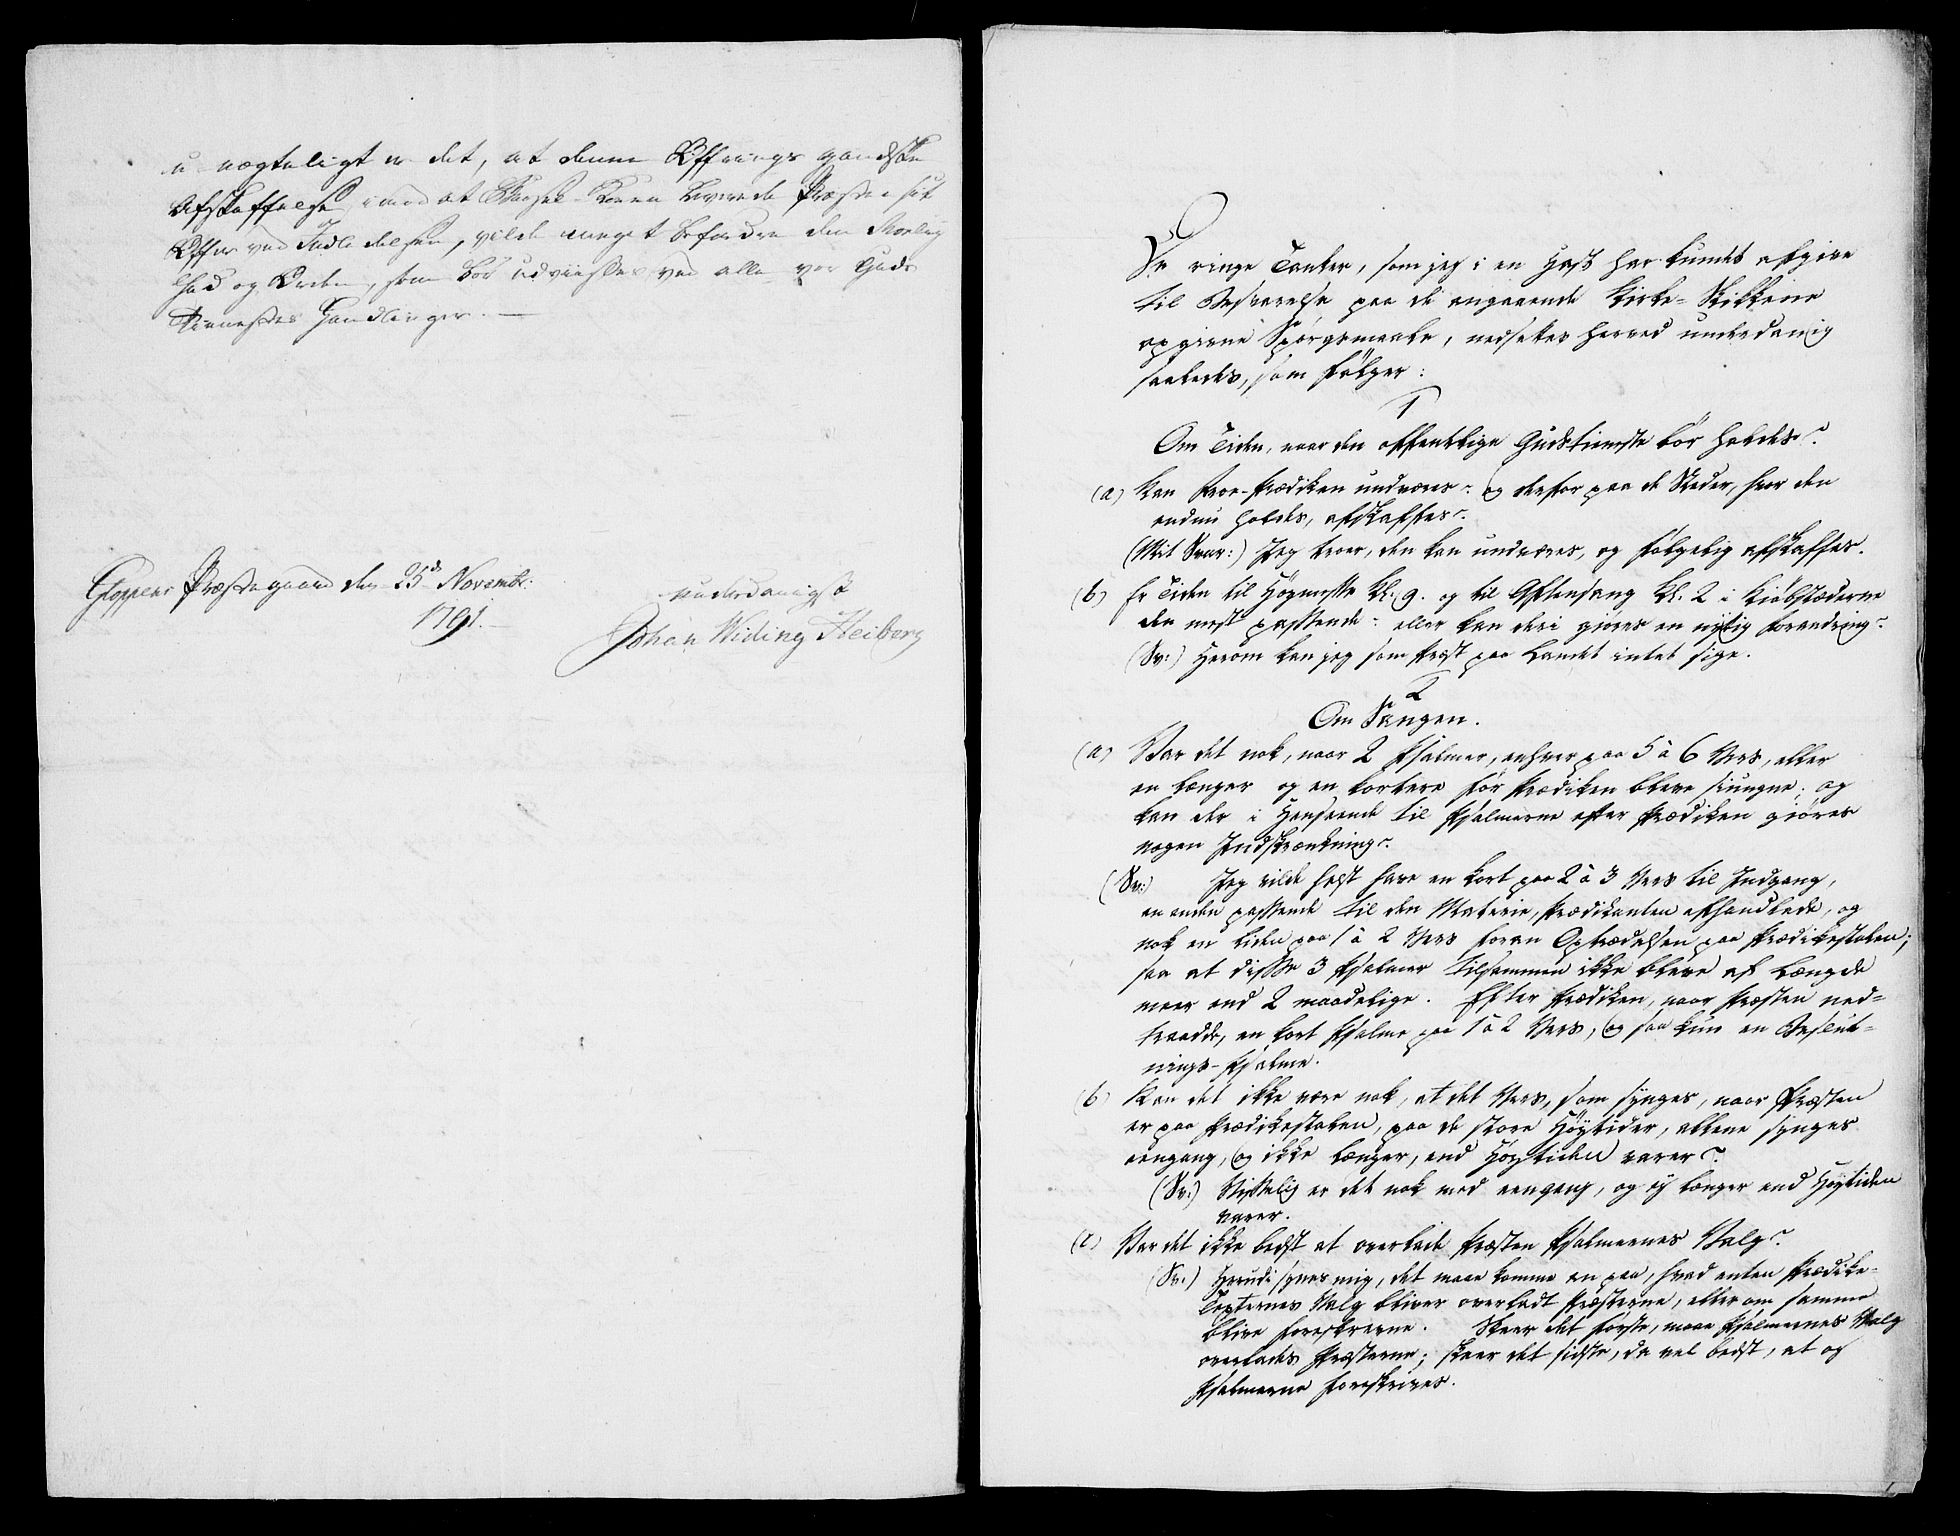 u-nægteligt er det, at denne Offrings gandske
Afskaffelse, imod at Barsel-Konen leverede Præsten sit
Offer ved Indledelsen, vilde meget befordre den Roelig
hed og Orden, som bør udviises ved alle vor Guds
Tienestes Handlinger. —
Gloppens Præstegaard den 25de Novembr:
1791. —
underdanigst
Johan Widing Heiberg
De ringe Tanker, som jeg i en Hast har kundet afgive
til Besvarelse paa de angaaende Kirke-Skikkene
opgivne Spørgsmaale, nedsettes herved underdanig
saaledes, som følger:
1
Om Tiden, naar den offentlige Gudstieneste bør holdes?
(a) Kan Froe-Prædiken undværes: og derfor paa de Steder, hvor den
endnu holdes, afskaffes?
(Mit Svar:) Jeg troer, den kan undværes, og følgelig afskaffes.
(b) Er Tiden til Høymesse Kl. 9. og til Aftensang Kl. 2 i Kiøbstæderne
den mest passende: eller kan deri giøres en nyttig Forandring?
(Sv:) Herom kan jeg som Præst paa Landet intet sige.
2
Om Sangen.
(a) Var det nok, naar 2 Psalmer, enhver paa 5 à 6 Vers, eller
en længer og en kortere før Prædiken bleve siungne; og
kan der i Henseende til Psalmerne efter Prædiken giøres
nogen Indskrænkning?
(Sv:) Jeg vilde helst have en kort paa 2 à 3 Vers til Indgang,
en anden passende til den Materie, Prædikanten afhandlede, og
nok en liden paa 1 à 2 Vers foran Optrædelsen paa Prædikestolen;
saa at disse 3 Psalmer tilsammen ikke bleve af Længde
meer end 2 maadelige. Efter Prædiken, naar Præsten ned-
traadde, en kort Psalme paa 1 à 2 Vers, og saa kun en Beslut-
nings-Psalme.
(b) Kan det ikke være nok, at det Vers, som synges, naar Præsten
er paa Prædikestolen, paa de store Høytider, allene synges
eengang, og ikke længer, end Høytiden varer?
(Sv:) Visselig er det nok med eengang, og ey længer end Høytiden
varer.
(c) Var det ikke bedst at overlade Præsten Psalmernes Valg?
(Sv:) Herudi synes mig, det maae komme an paa, hvad enten Prædike-
Texternes Valg bliver overladt Præsterne, eller om samme
blive foreskrevne. Skeer det første, maae Psalmernes Valg
overlades Præsterne; skeer det sidste, da vel bedst, at og
Psalmerne foreskrives.